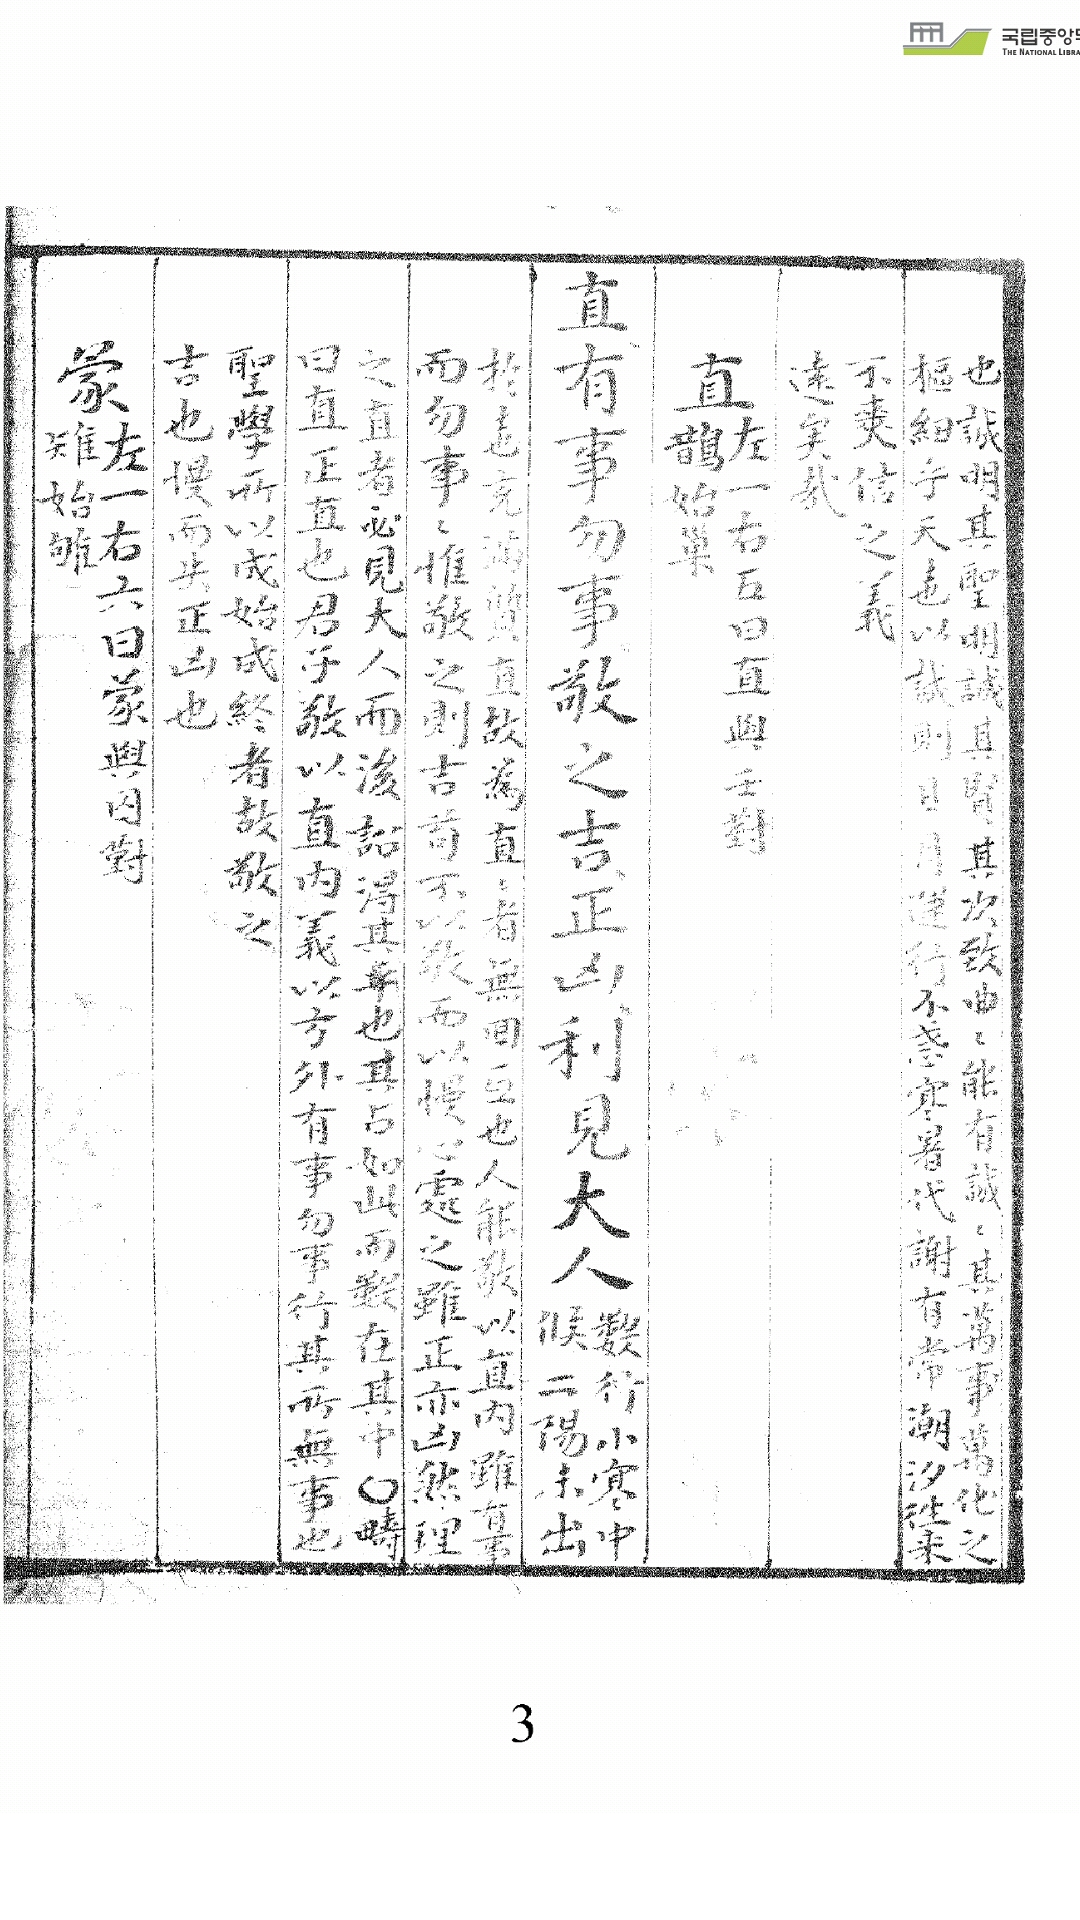 국립중앙도
THE NATIONAL LIBRA
也誠明其聖明誠其賢其次致曲〻能有誠〻其萬事萬化之
樞紐乎天惪以誠則日月運行不忒寒暑代謝有常潮汐往来
不爽信之義
遠矣哉
直
左一右五曰直與壬對
鵲始巢
直有事勿事敬之吉正凶利見大人
數行小寒中
候二陽未出
於惪充滿質直故爲直〻者無回互也人能敬以直內雖有事
而勿事〻惟敬之則吉苟不以敬而以慢心處之雖正亦凶然理
之直者必見大人而後詔得其辜也其占如此而數在其中〇疇
曰直正直也君子敬以直內義以方外有事勿事行其所無事也
聖學所以成始成終者故敬之
吉也慢而失正凶也
蒙
左一右六曰蒙與囚對
雉始雊
3